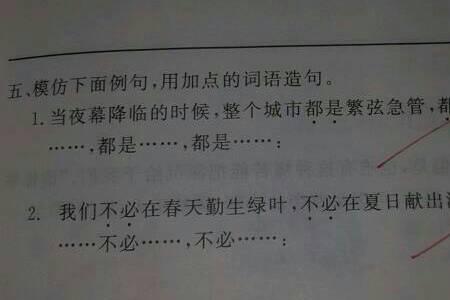 五、模仿下面例句,用加点的词语造句。
1.当夜幕降临的时候,整个城市都是繁弦急管,都
……,都是……,都是……:
2. 我们不必在春天勤生绿叶,不必在夏日献出
……不必……,不必……: